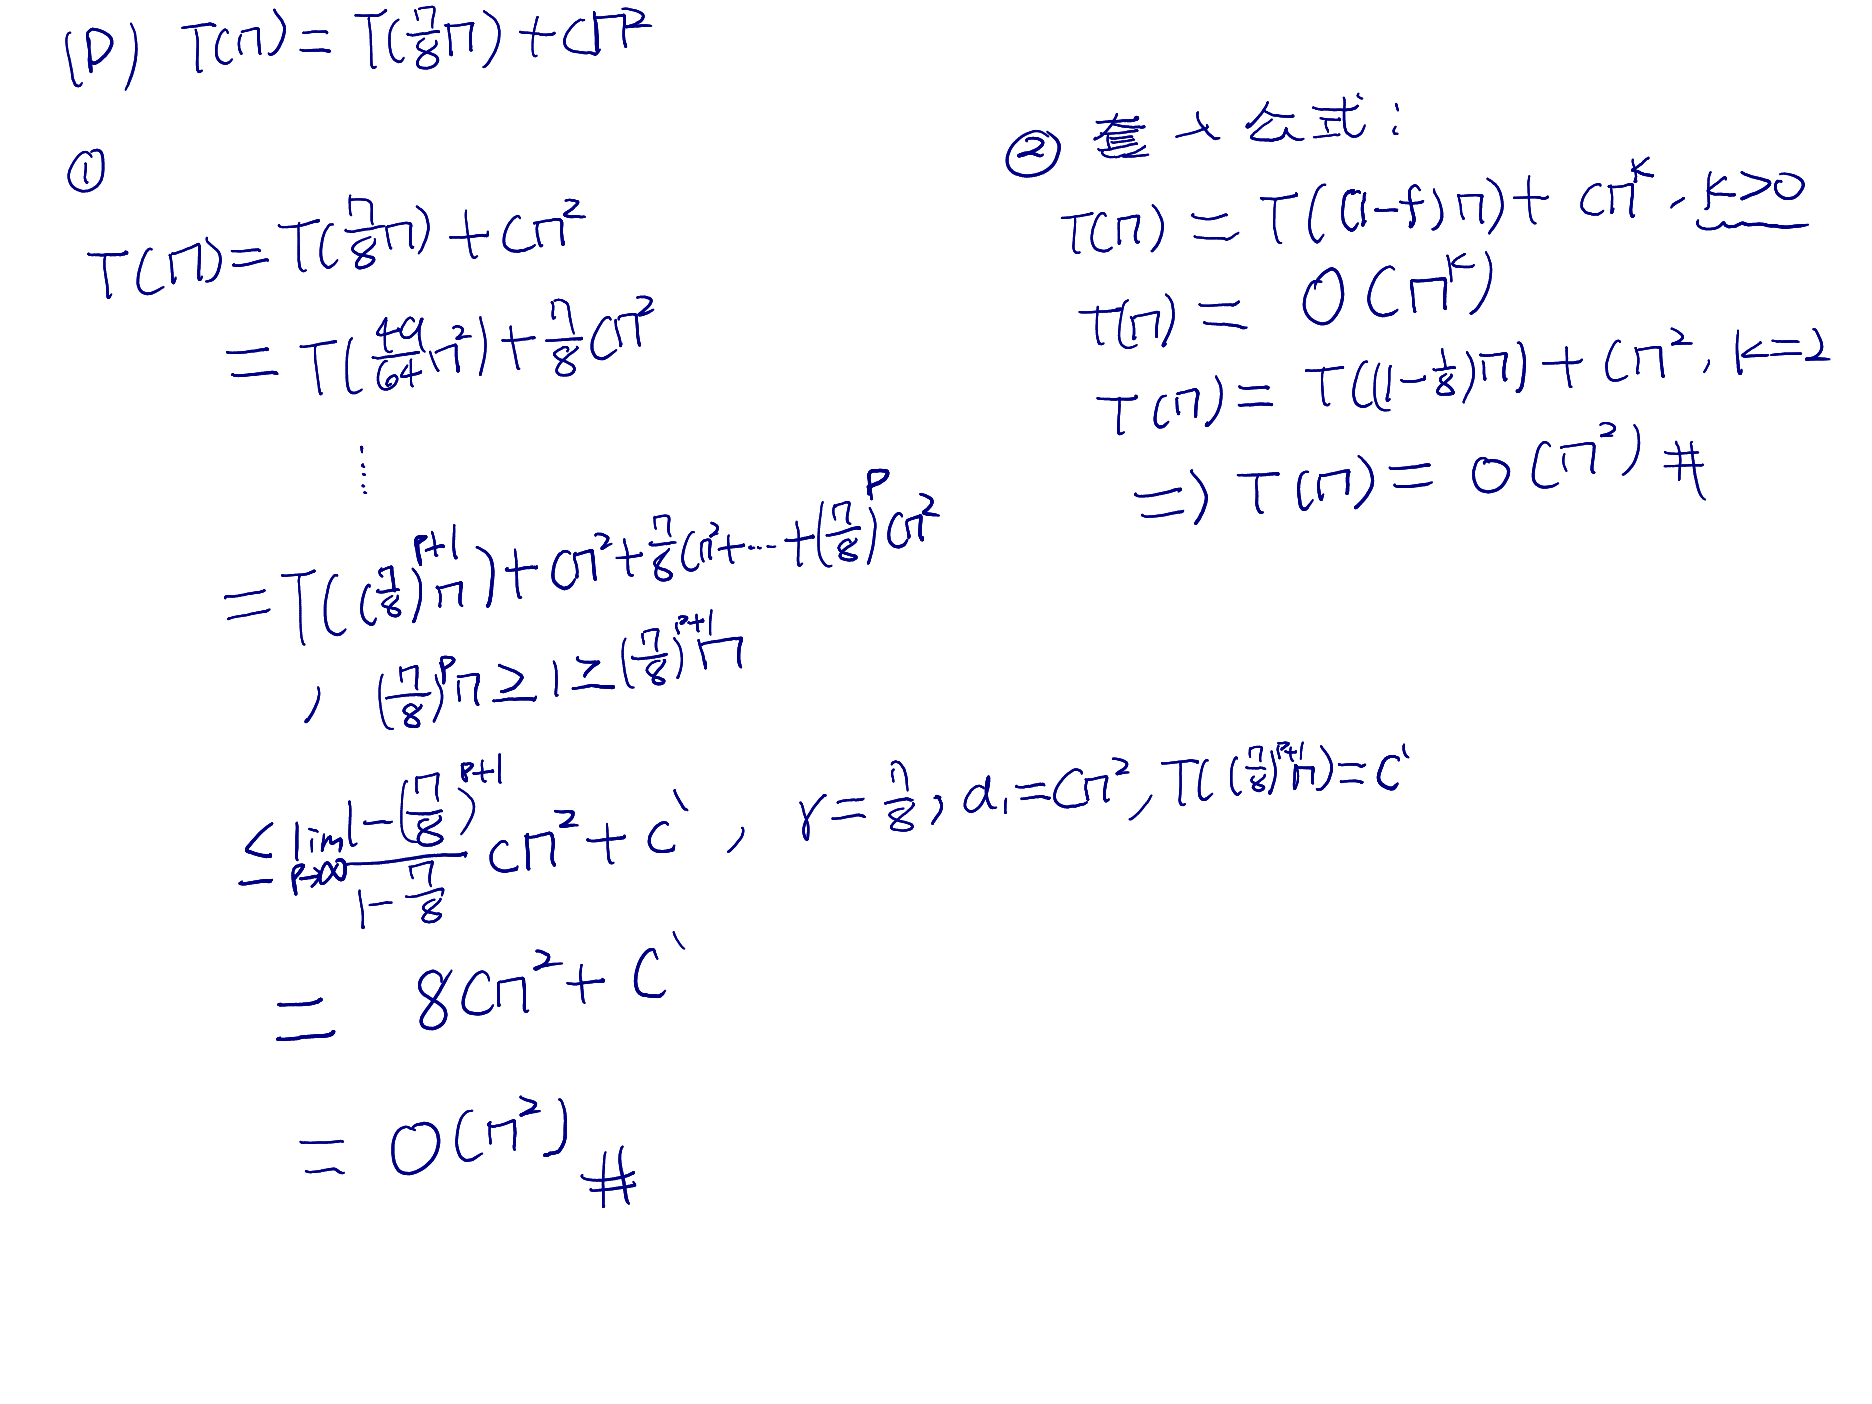 (D) T(n) = T(7/8 n) + cn²
①
T(n) = T(7/8 n) + cn²
= T(49/64 n²) + 7/8 cn²
⋮
= T((7/8)^(p+1) n) + cn² + 7/8 cn² + ⋯ + (7/8)^p cn²
, (7/8)^p n ≥ 1 ≥ (7/8)^(p+1) n
≤ lim p→∞ (1-(7/8)^(p+1))/(1-7/8) cn² + c' , r = 7/8, a₁ = cn², T((7/8)^(p+1) n) = c'
= 8cn² + c'
= O(n²) #
② 套入公式:
T(n) = T((1-f)n) + cn^k, k>0
T(n) = O(n^k)
T(n) = T((1-1/8)n) + cn², k=2
=> T(n) = O(n²) #